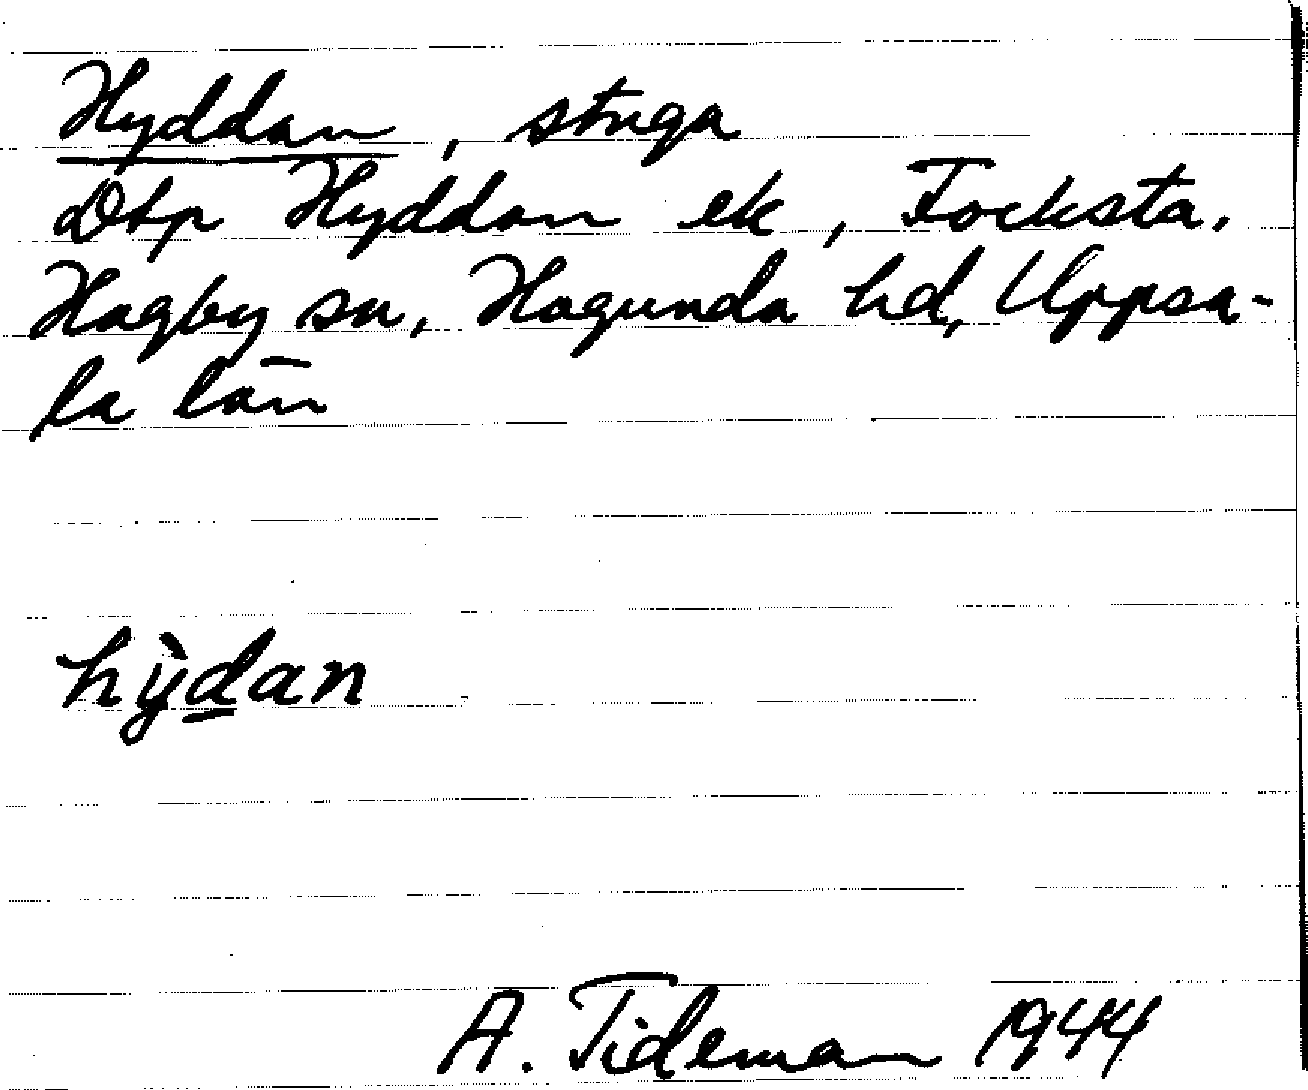 Hyddan, stuga
Dtp Hyddan ek, Focksta,
Hagby sn, Hagunda hd, Uppsa-
la län
hỳdan
A. Tideman 1944